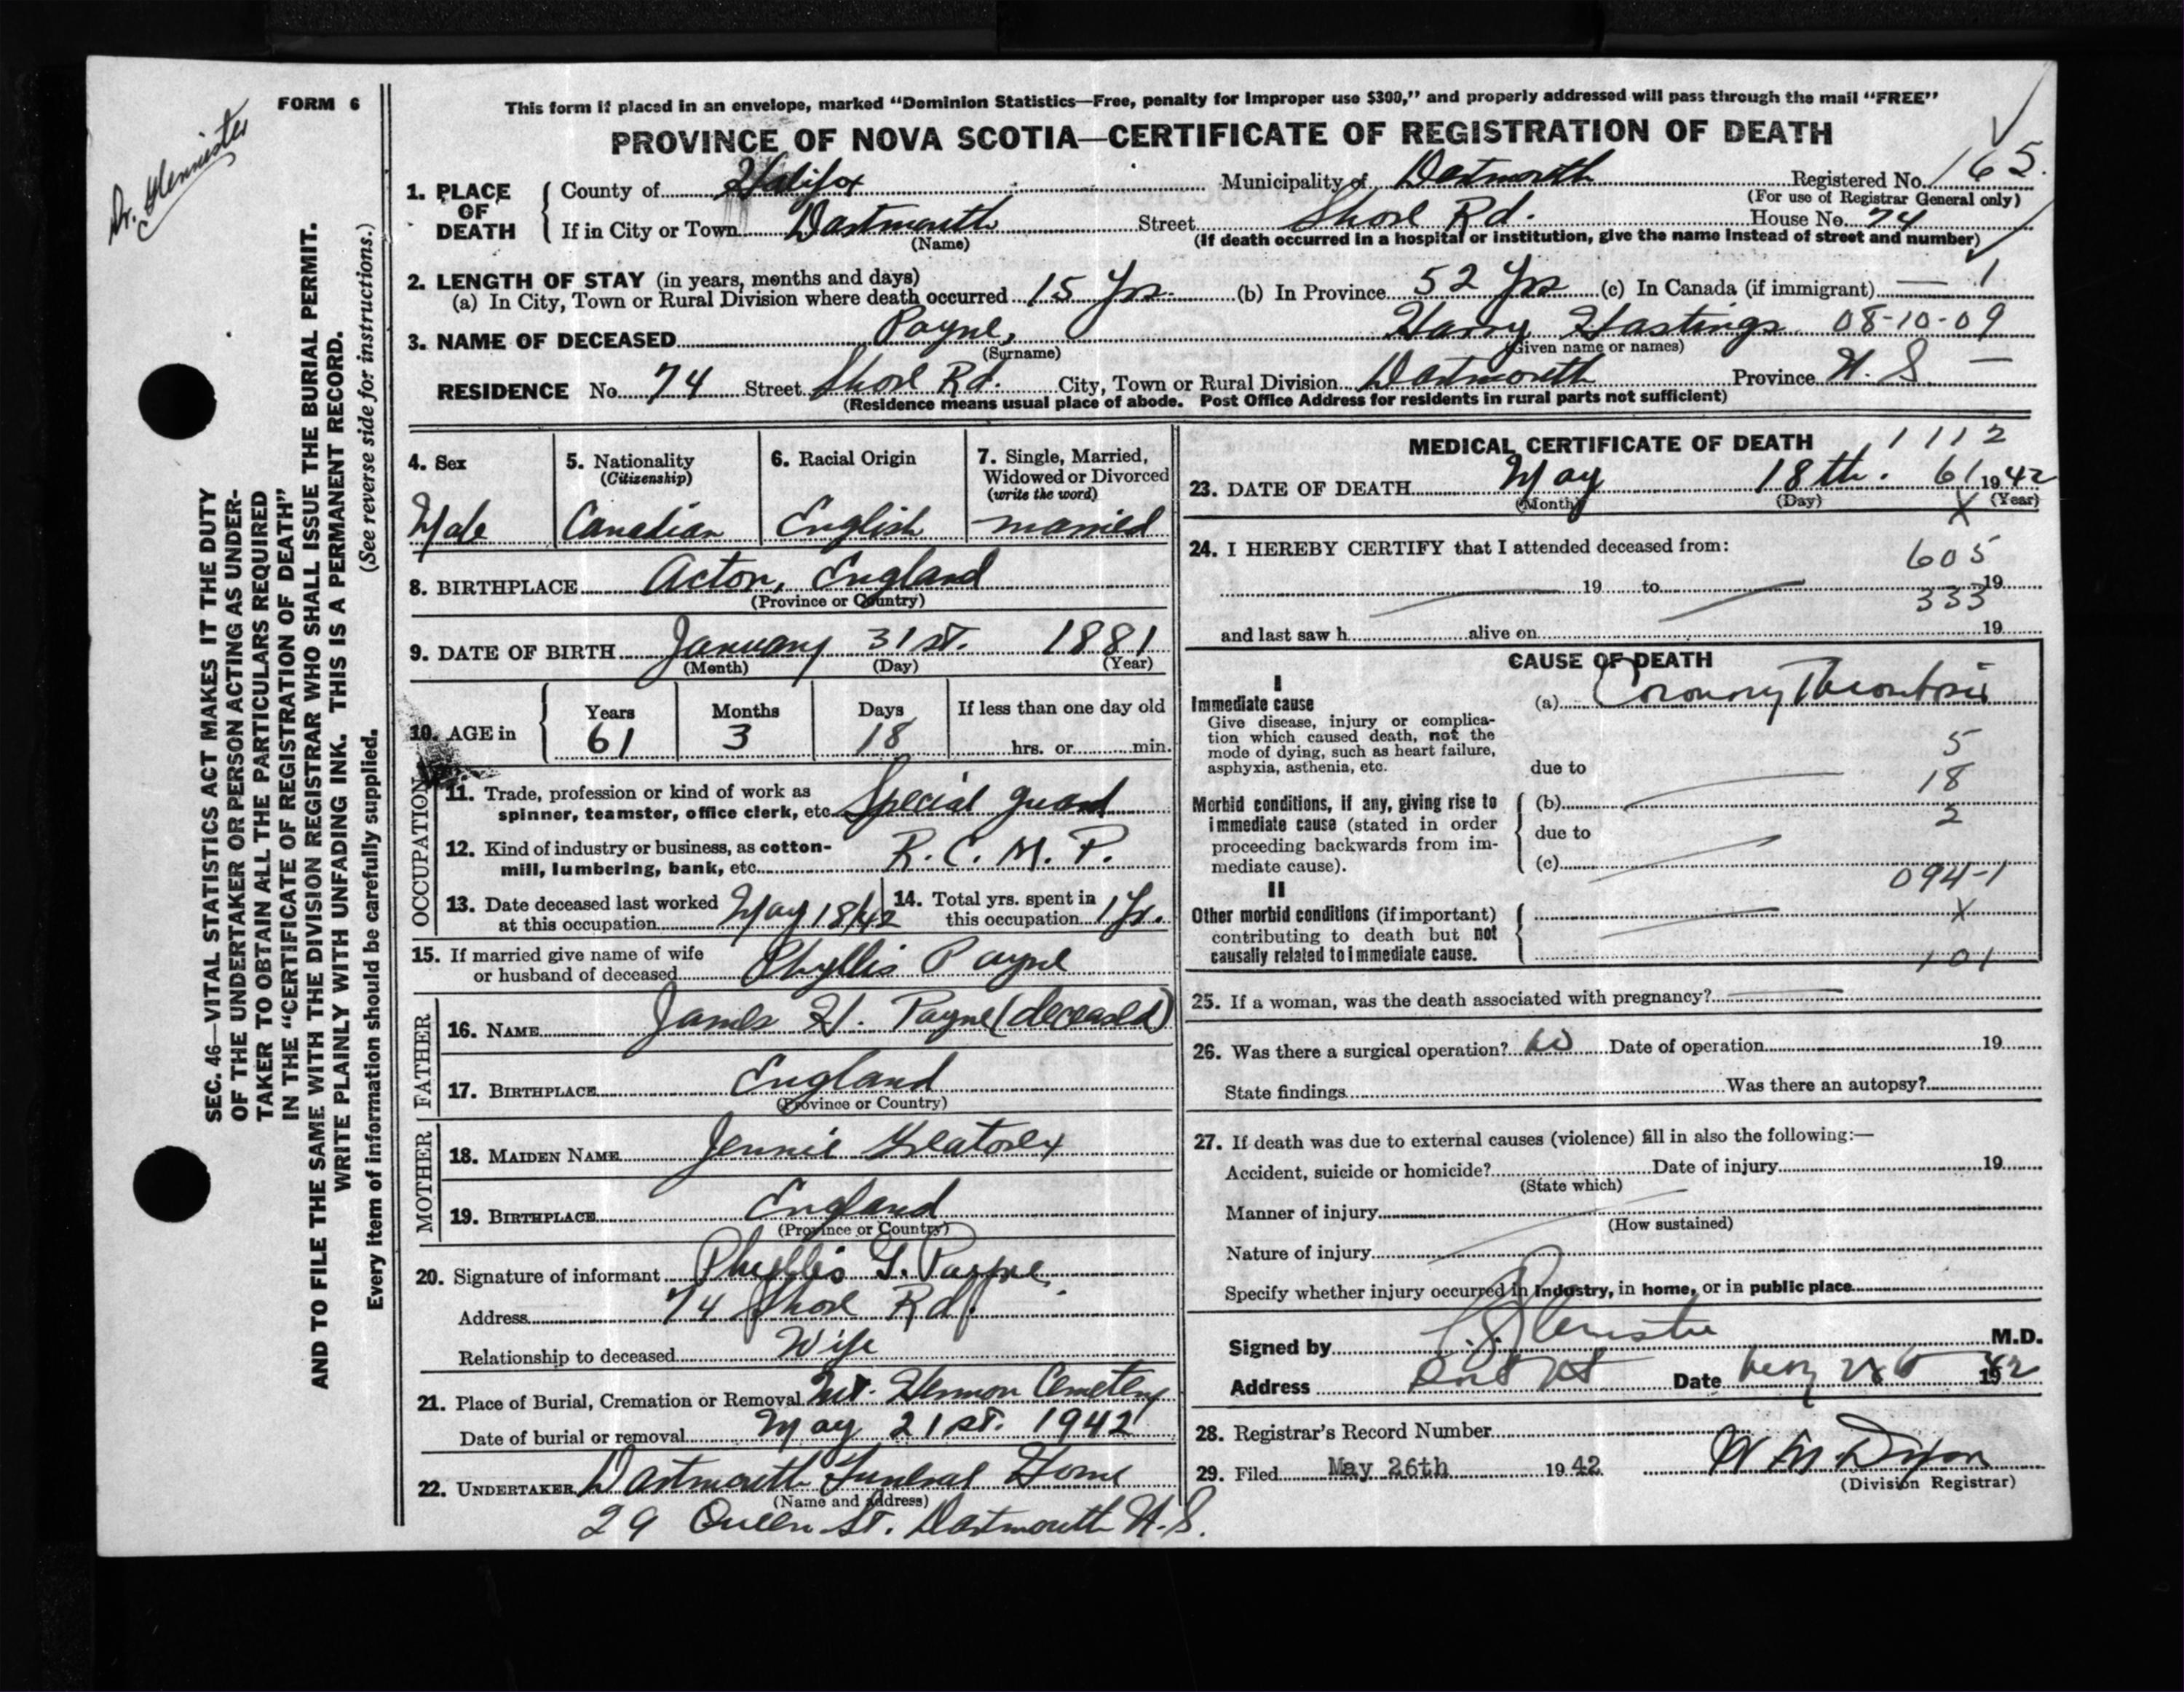 FORM 6
This form if placed in an envelope, marked “Dominion Statistics—Free, penalty for improper use $300,” and properly addressed will pass through the mail “FREE”
PROVINCE OF NOVA SCOTIA—CERTIFICATE OF REGISTRATION OF DEATH
1. PLACE OF DEATH
County of Halifax Municipality of Dartmouth Registered No. 165.
(For use of Registrar General only)
If in City or Town Dartmouth Street Shore Rd. House No. 74
(Name) (If death occurred in a hospital or institution, give the name instead of street and number)
2. LENGTH OF STAY (in years, months and days)
(a) In City, Town or Rural Division where death occurred 15 Yrs. (b) In Province 52 Yrs (c) In Canada (if immigrant) — 1
3. NAME OF DECEASED Payne, Harry Hastings 08-10-09
(Surname) (Given name or names)
RESIDENCE No. 74 Street Shore Rd. City, Town or Rural Division Dartmouth Province N.S. —
(Residence means usual place of abode. Post Office Address for residents in rural parts not sufficient)
4. Sex
Male
5. Nationality
(Citizenship)
Canadian
6. Racial Origin
English
7. Single, Married,
Widowed or Divorced
(write the word)
married
8. BIRTHPLACE Acton, England
(Province or Country)
9. DATE OF BIRTH January 31st. 1881
(Month) (Day) (Year)
10. AGE in
Years Months Days If less than one day old
61 3 18 hrs. or min.
OCCUPATION
11. Trade, profession or kind of work as
spinner, teamster, office clerk, etc. Special guard
12. Kind of industry or business, as cotton-
mill, lumbering, bank, etc. R.C.M.P.
13. Date deceased last worked
at this occupation May 18/42
14. Total yrs. spent in
this occupation 1 Yr.
15. If married give name of wife
or husband of deceased Phyllis Payne
FATHER
16. NAME James H. Payne (deceased)
17. BIRTHPLACE England
(Province or Country)
MOTHER
18. MAIDEN NAME Jennie Greatorex
19. BIRTHPLACE England
(Province or Country)
20. Signature of informant Phyllis G. Payne
Address 74 Shore Rd.
Relationship to deceased Wife
21. Place of Burial, Cremation or Removal Mt. Hermon Cemetery
Date of burial or removal May 21st. 1942
22. UNDERTAKER Dartmouth Funeral Home
(Name and address)
29 Queen St. Dartmouth N.S.
MEDICAL CERTIFICATE OF DEATH 1112
23. DATE OF DEATH May 18th. 61 1942
(Month) (Day) X (Year)
24. I HEREBY CERTIFY that I attended deceased from:
605
19 to 19
333
and last saw h alive on 19
CAUSE OF DEATH
I
Immediate cause (a) Coronary Thrombosis
Give disease, injury or complica-
tion which caused death, not the
mode of dying, such as heart failure,
asphyxia, asthenia, etc.
5
due to
18
Morbid conditions, if any, giving rise to
immediate cause (stated in order
proceeding backwards from im-
mediate cause).
(b)
2
due to
(c)
094-1
II
Other morbid conditions (if important)
contributing to death but not
causally related to immediate cause.
X
101
25. If a woman, was the death associated with pregnancy?
26. Was there a surgical operation? No Date of operation 19
State findings Was there an autopsy?
27. If death was due to external causes (violence) fill in also the following:—
Accident, suicide or homicide? Date of injury 19
(State which)
Manner of injury
(How sustained)
Nature of injury
Specify whether injury occurred in industry, in home, or in public place
Signed by M.D.
Address Date 1942
28. Registrar's Record Number
29. Filed May 26th 1942 W M Dixon
(Division Registrar)
SEC. 46—VITAL STATISTICS ACT MAKES IT THE DUTY
OF THE UNDERTAKER OR PERSON ACTING AS UNDER-
TAKER TO OBTAIN ALL THE PARTICULARS REQUIRED
IN THE “CERTIFICATE OF REGISTRATION OF DEATH”
AND TO FILE THE SAME WITH THE DIVISION REGISTRAR WHO SHALL ISSUE THE BURIAL PERMIT.
WRITE PLAINLY WITH UNFADING INK. THIS IS A PERMANENT RECORD.
(See reverse side for instructions.)
Every item of information should be carefully supplied.